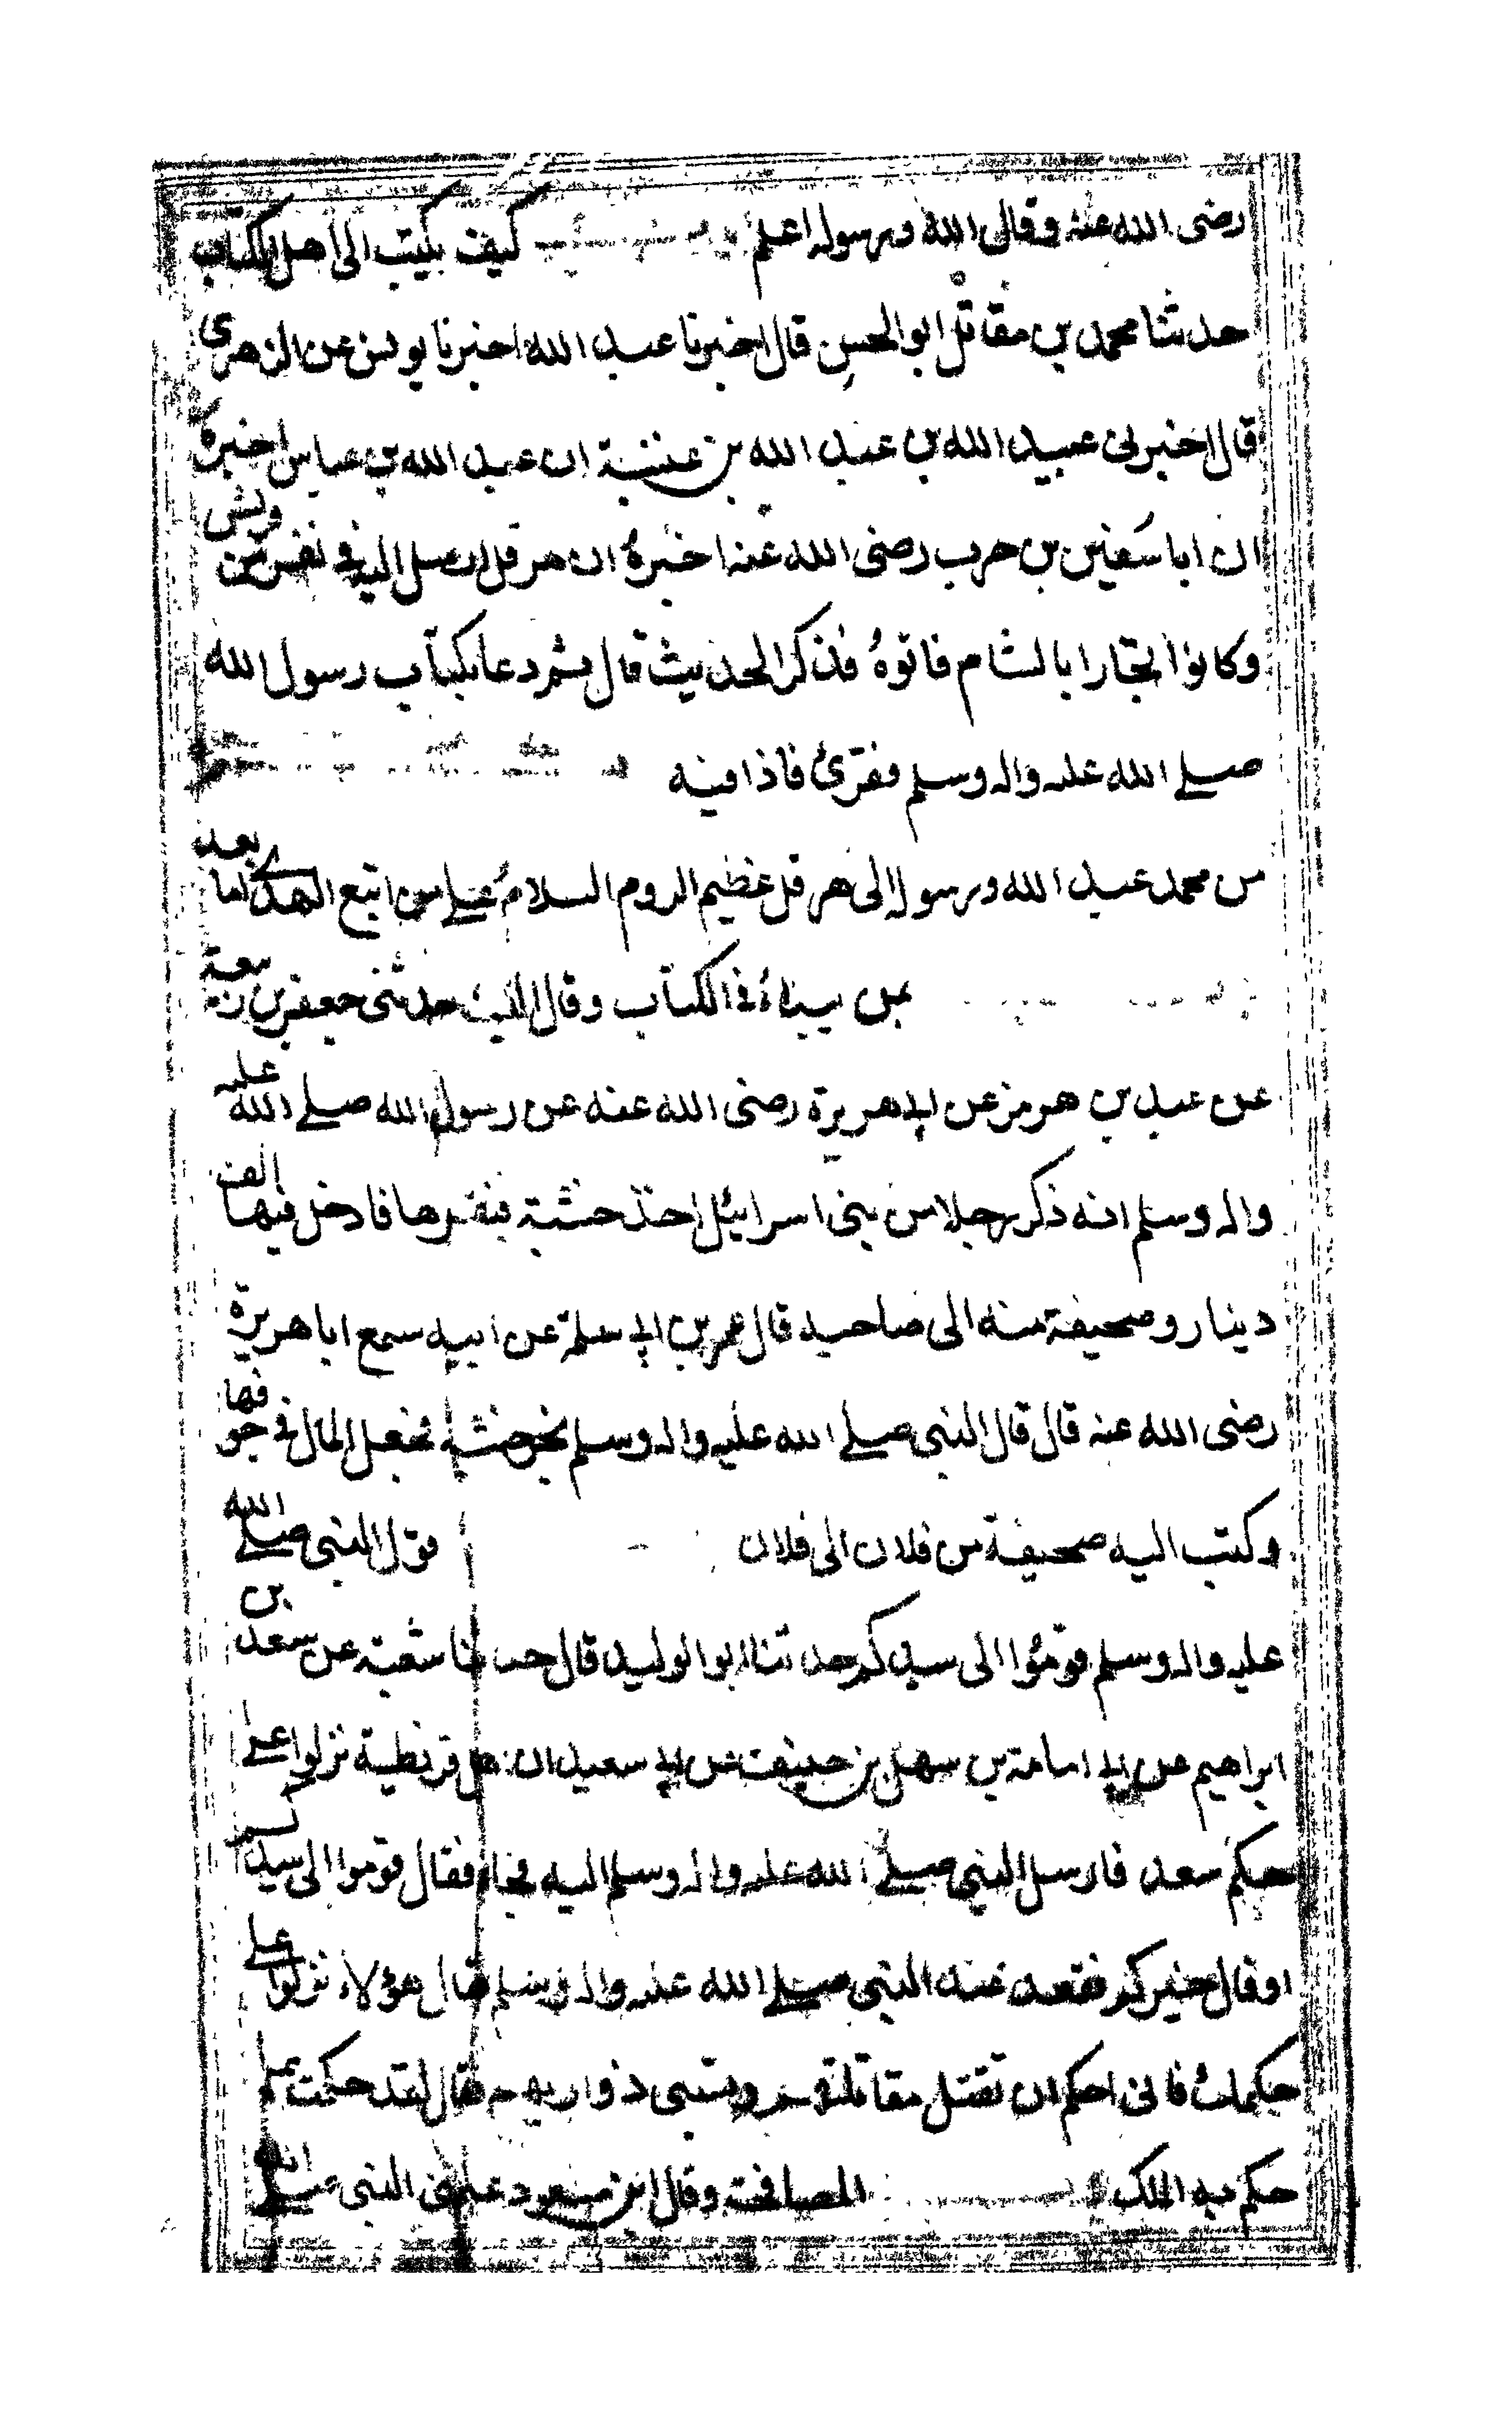 رضى الله عنه وقال الله ورسوله اعلم كيف يكتب الى اهل الكتاب
حدثنا محمد بن مقاتل ابو الحسن قال اخبرنا عبد الله اخبرنا يونس عن الزهرى
قال اخبرنى عبيد الله بن عبد الله بن عتبة ان عبد الله بن عباس اخبره
ان ابا سفين بن حرب رضى الله عنه اخبره ان هرقل ارسل اليه فى نفر من قريش
وكانوا تجارا بالشام فاتوه فذكر الحديث قال ثم دعا بكتاب رسول الله
صلى الله عليه واله وسلم فقرئ فاذا فيه
من محمد عبد الله ورسوله الى هرقل عظيم الروم السلام على من اتبع الهدى اما بعد
بمن يبداء فى الكتاب وقال الليث حدثنى جعفر بن ربيعة
عن عبد بن هرمز عن ابى هريرة رضى الله عنه عن رسول الله صلى الله عليه
واله وسلم انه ذكر رجلا من بنى اسرائيل اخذ خشبة فنقرها فادخل فيها الف
دينار وصحيفة منه الى صاحبه قال عمر بن ابى سلمة عن ابيه سمع ابا هريرة
رضى الله عنه قال قال النبى صلى الله عليه واله وسلم نجر خشبة فجعل المال فى جوفها
وكتب اليه صحيفة من فلان الى فلان قول النبى صلى الله
عليه واله وسلم قوموا الى سيدكم حدثنا ابو الوليد قال حدثنا شعبة عن سعد بن
ابراهيم عن ابى امامة بن سهل بن حنيف عن ابى سعيد ان اهل قريظة نزلوا على
حكم سعد فارسل النبى صلى الله عليه واله وسلم اليه فجاء فقال قوموا الى سيدكم
او قال خيركم فقعد عند النبى صلى الله عليه واله وسلم فقال هؤلاء نزلوا على
حكمك فانى احكم ان تقتل مقاتلتهم وتسبى ذراريهم فقال لقد حكمت بما
حكم به الملك المصافحة وقال ابن مسعود علمنى النبى صلى الله